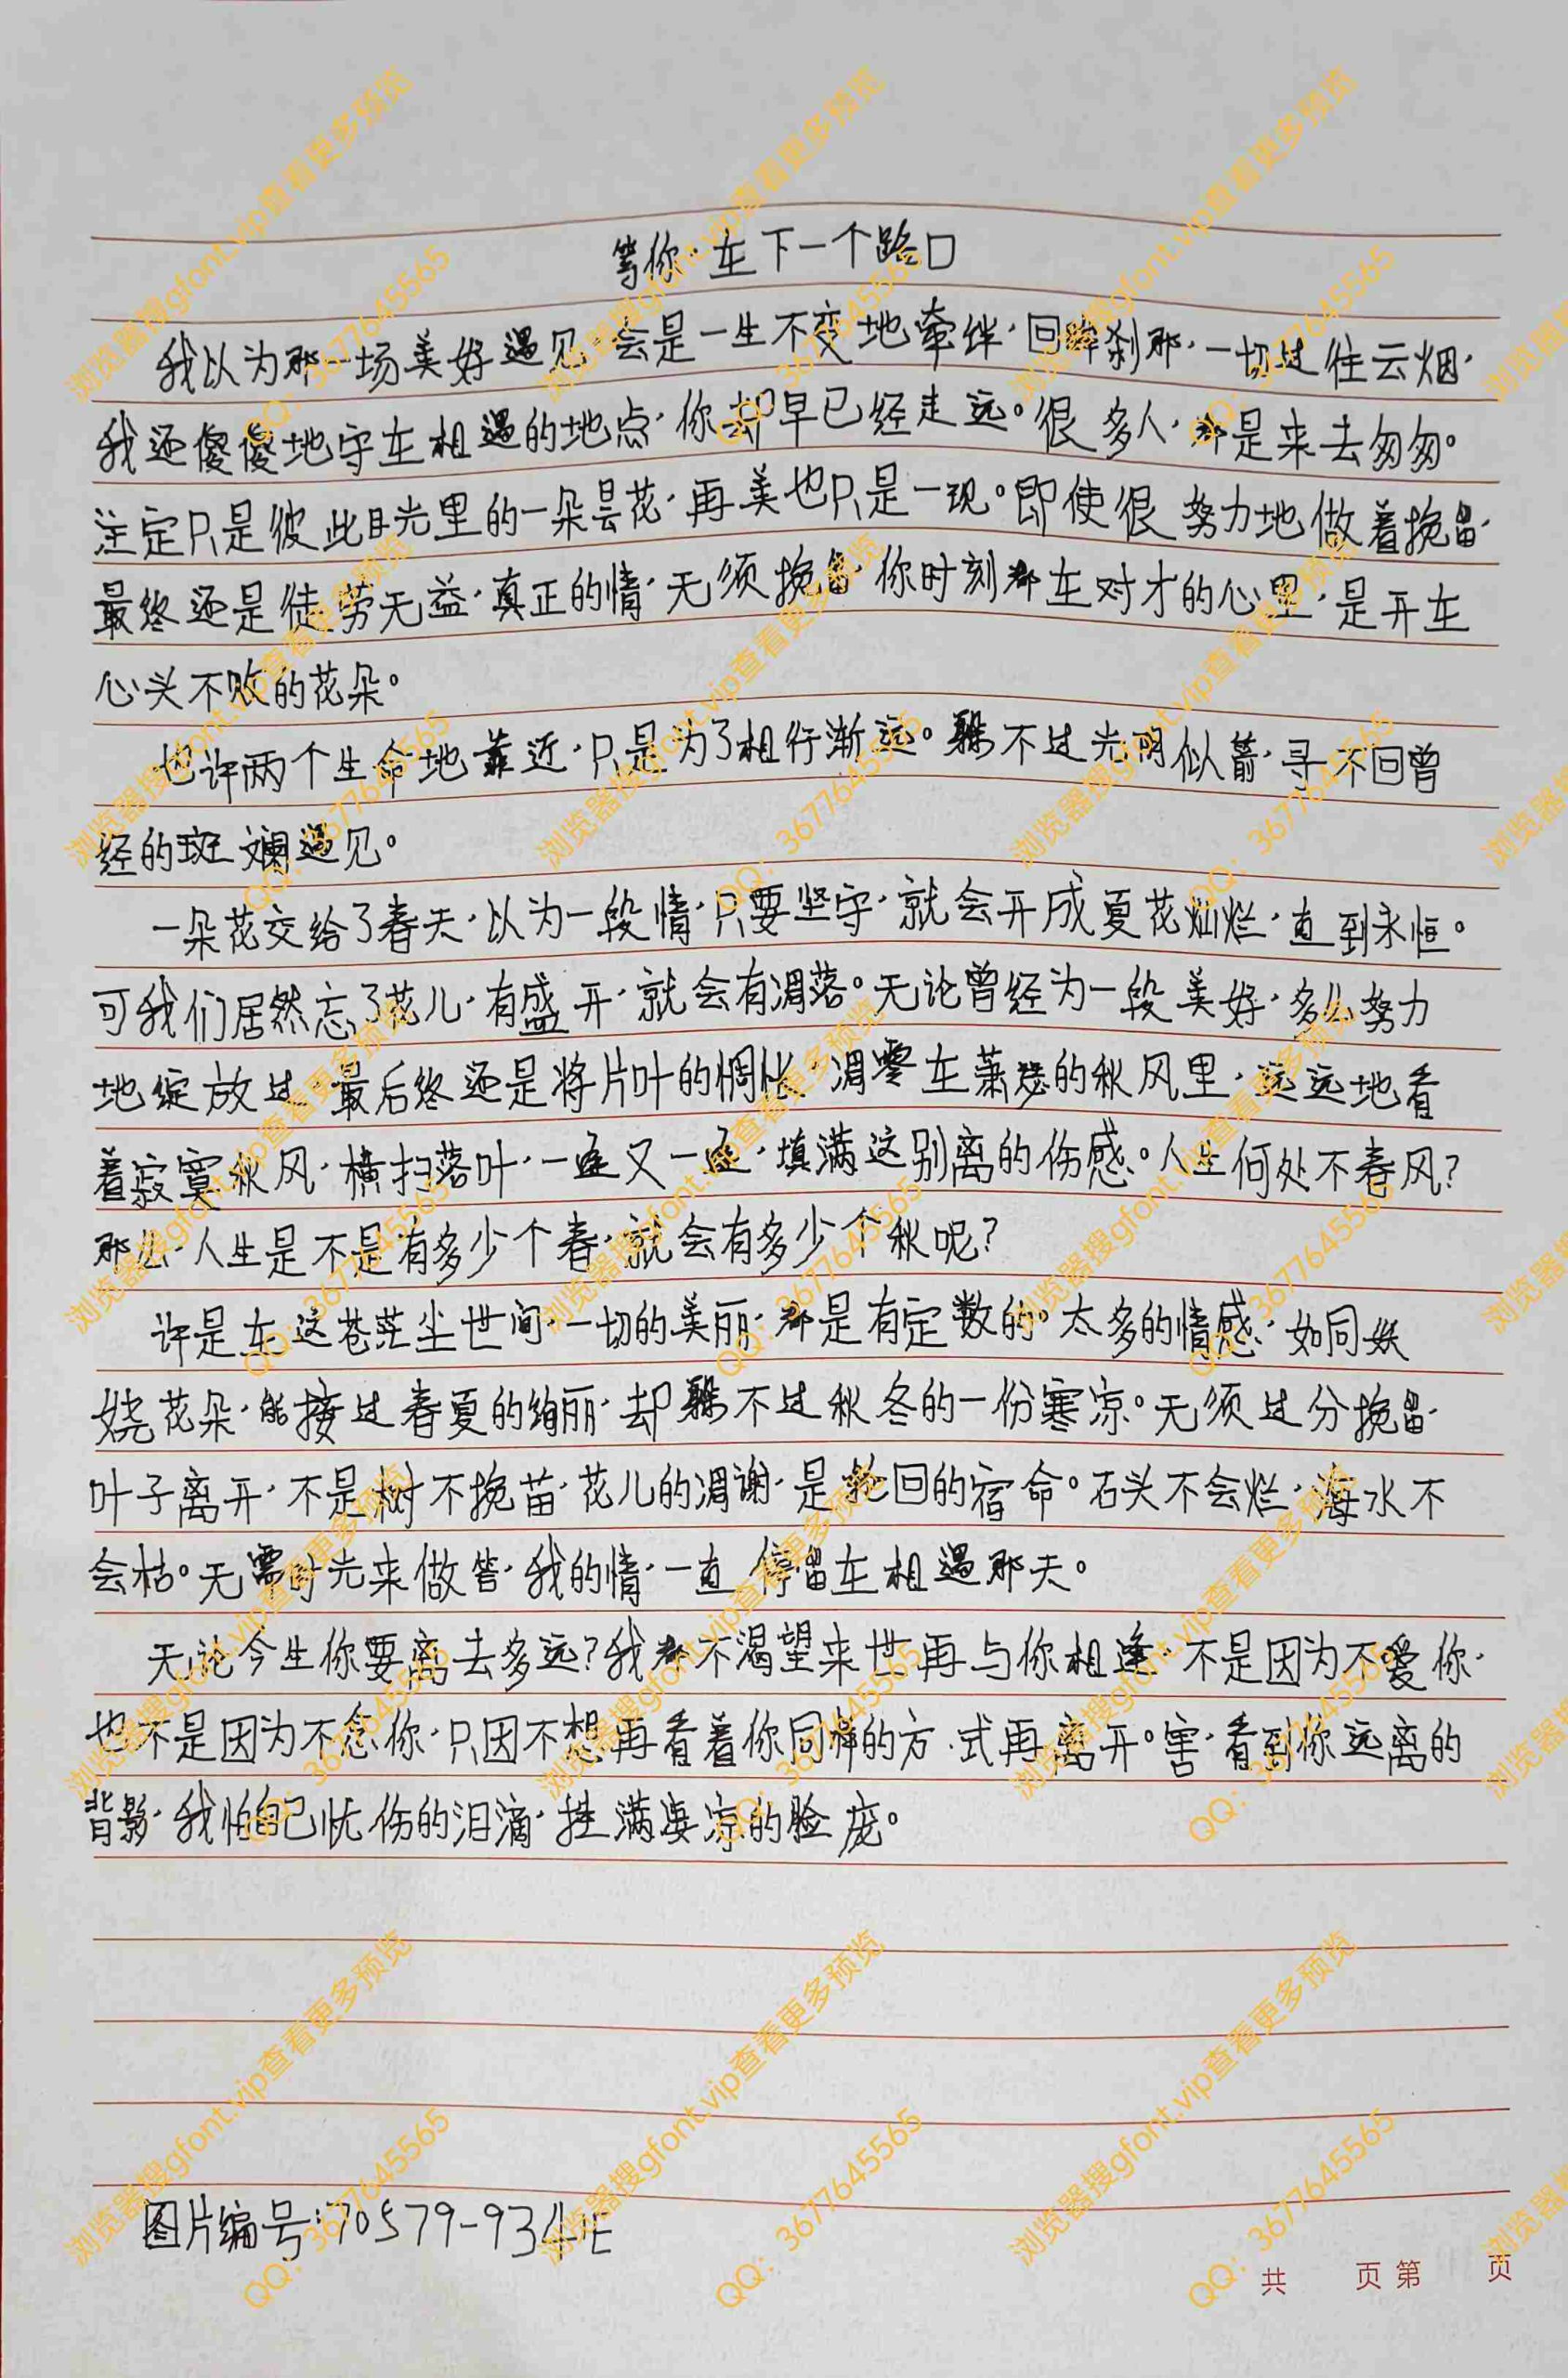 等你,在下一个路口
我以为那一场美好遇见,会是一生不变地牵绊,回眸刹那,一切过往云烟,
我还傻傻地守在相遇的地点,你却早已经走远。很多人,都是来去匆匆。
注定只是彼此目光里的一朵昙花,再美也只是一现。即使很努力地做着挽留,
最终还是徒劳无益,真正的情,无须挽留,你时刻都在对才的心里,是开在
心头不败的花朵。
也许两个生命地靠近,只是为了相行渐远。躲不过光阴似箭,寻不回曾
经的斑斓遇见。
一朵花交给了春天,以为一段情,只要坚守,就会开成夏花灿烂,直到永恒。
可我们居然忘了花儿,有盛开,就会有凋落。无论曾经为一段美好,多么努力
地绽放过,最后终还是将片叶的惆怅,凋零在萧瑟的秋风里,远远地看
着寂寞秋风,横扫落叶,一遍又一遍,填满这别离的伤感。人生何处不春风?
那么,人生是不是有多少个春,就会有多少个秋呢?
许是在这苍茫尘世间,一切的美丽,都是有定数的。太多的情感,如同妖
娆花朵,能接过春夏的绚丽,却躲不过秋冬的一份寒凉。无须过分挽留,
叶子离开,不是树不挽苗,花儿的凋谢,是轮回的宿命。石头不会烂,海水不
会枯。无需时光来做答,我的情,一直停留在相遇那天。
无论今生你要离去多远?我都不渴望来世再与你相逢,不是因为不爱你,
也不是因为不念你,只因不想再看着你同样的方,式再离开。害,看到你远离的
背影,我怕自己忧伤的泪滴,挂满凄凉的脸庞。
图片编号:70579-934正
共 页 第 页
浏览器搜gfont.vip查看更多预览
QQ:3677645565